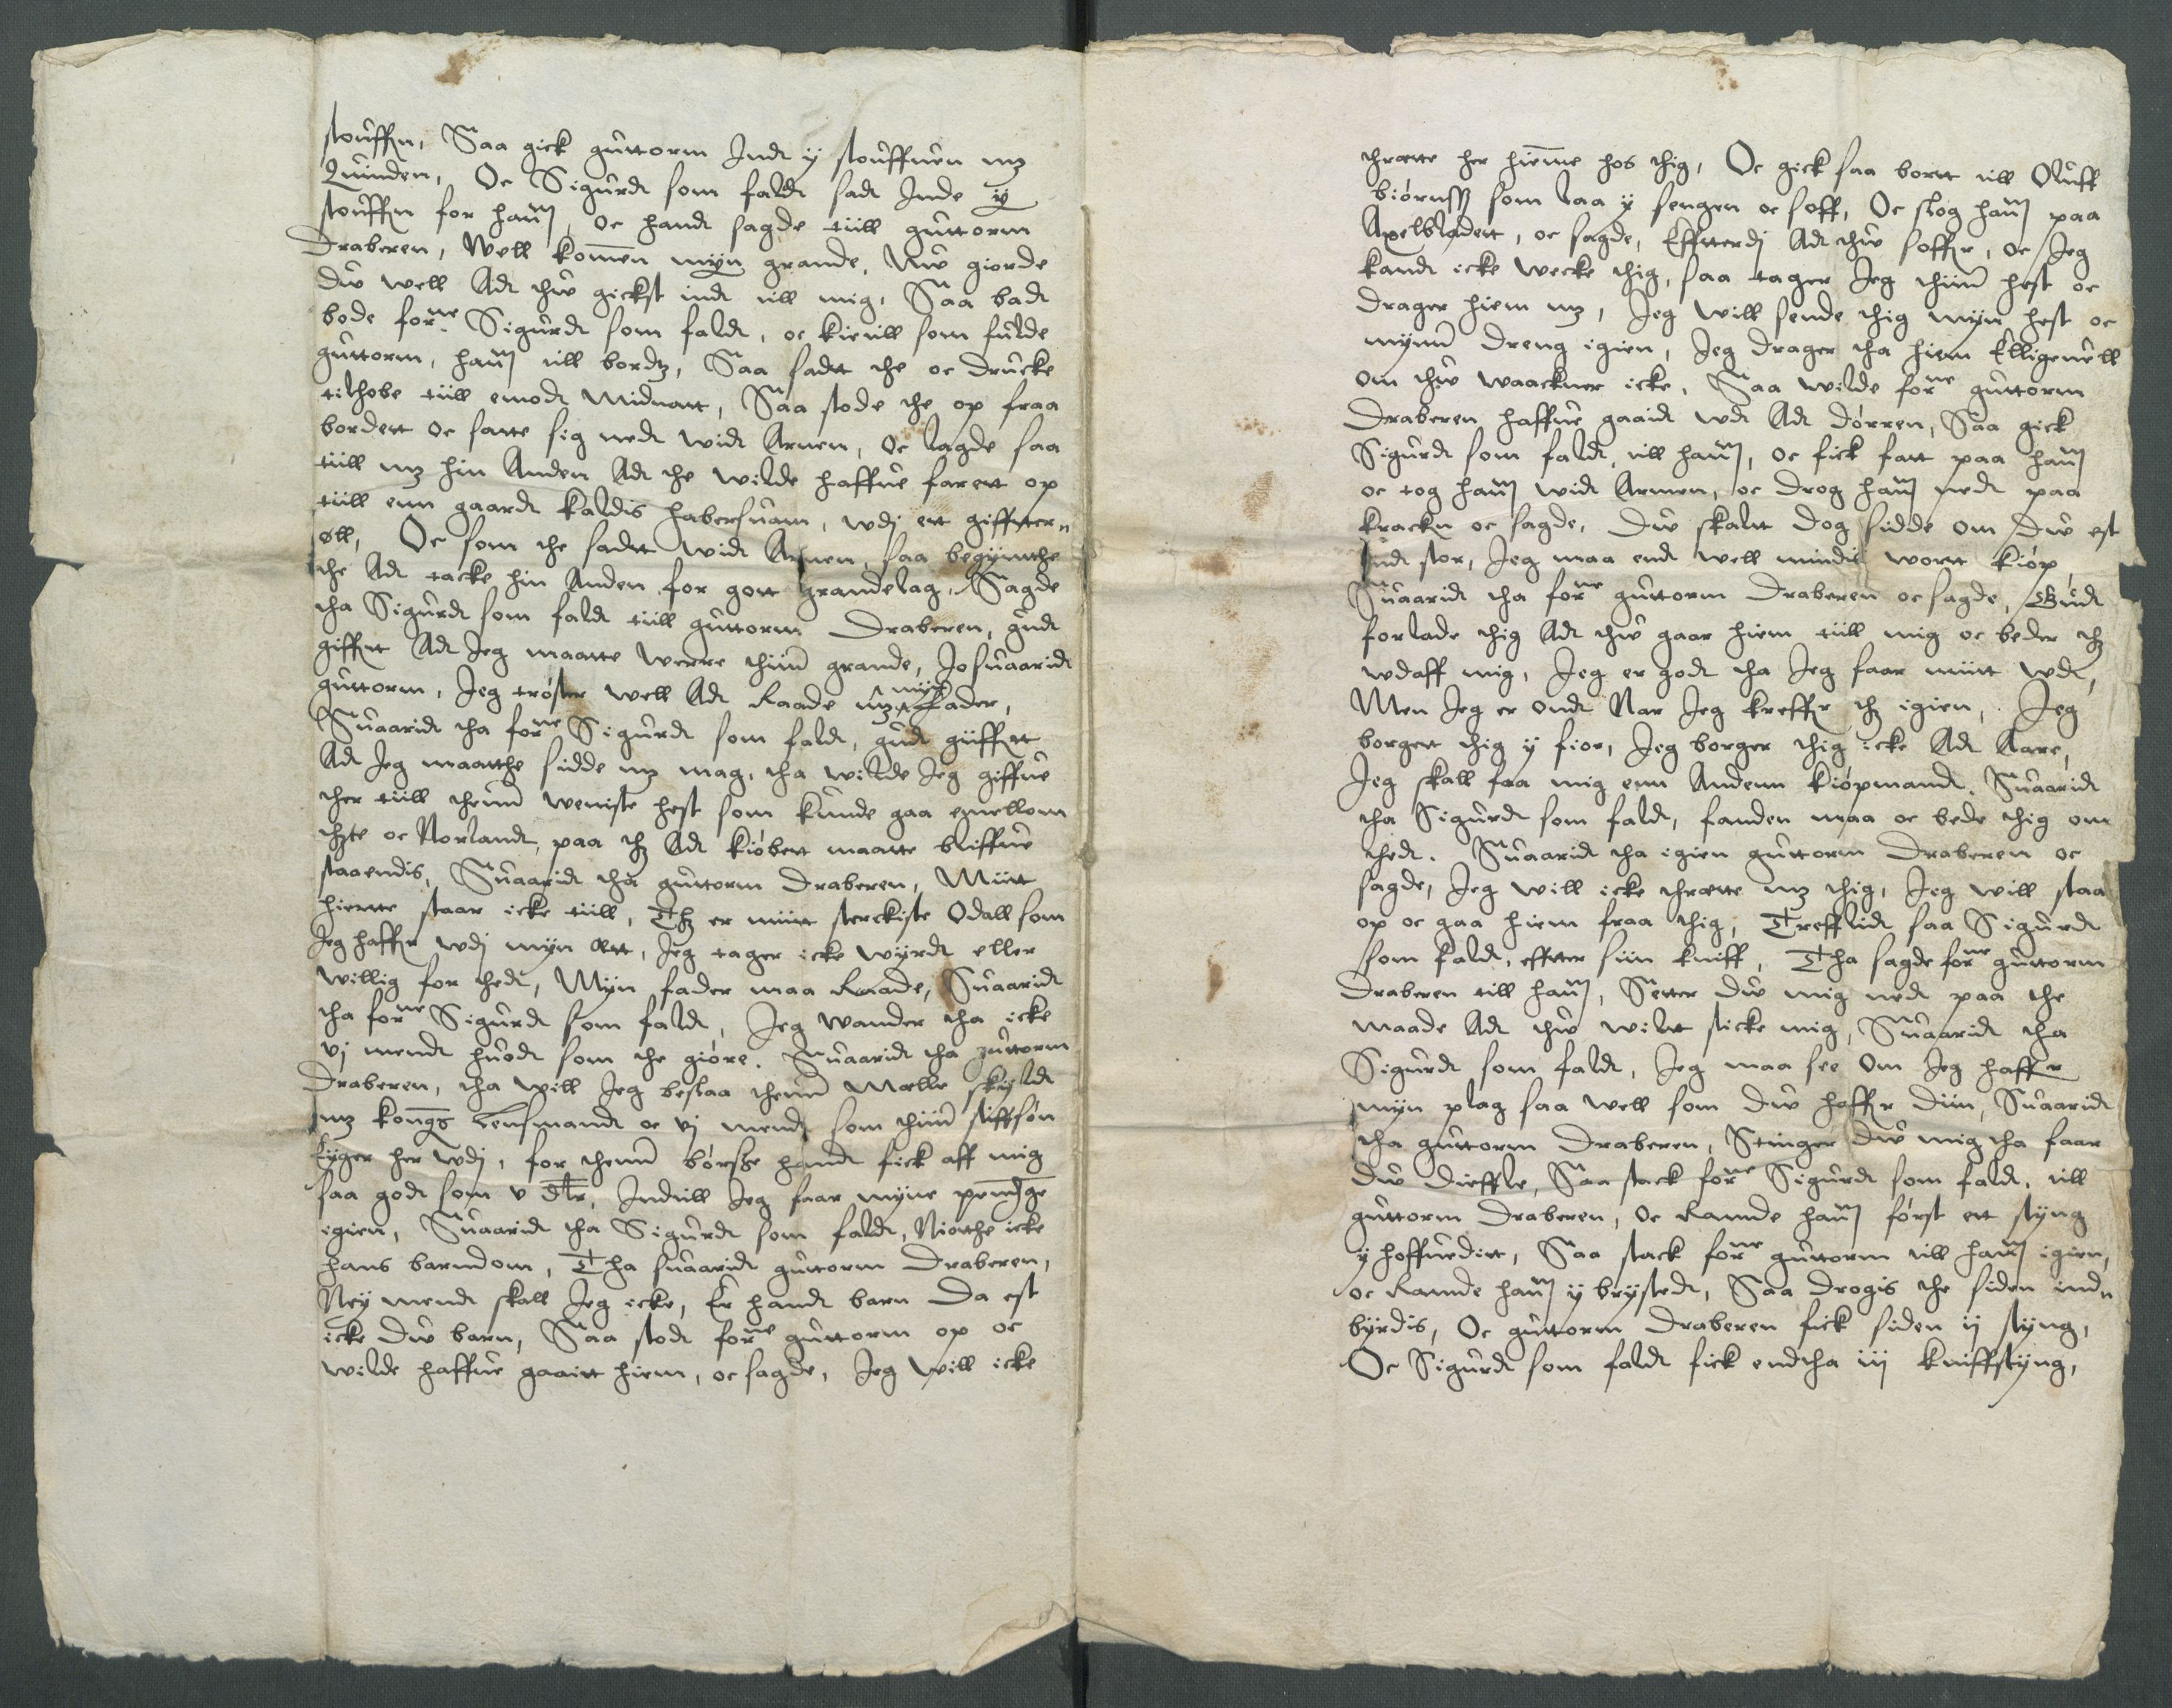 stouffen, Saa gick guttorm Indt ij stouffuen mz
Quinden, Oc Sigurdt som faldt sadt Inde ij
stouffen for hannom, oc handt sagde tiill guttorm
Draberen, Well kommen mijn grande, Nw giorde
dw well Adt thw gickst indt till mig, Saa badt
bode forne Sigurdt som faldt, oc kietill som fulde
guttorm, hannom till bordtz, Saa sadtt the oc drucke
tilhobe tiill emodt Midnatt, Saa stode the op fraa
bordett oc satte sig nedt widt Arnen, Oc lagde saa
tiill mz hin Anden Adt the wilde haffue farett op
tiill enn gaardt kaldis habersuam, wdj ett giffter„
øll, Oc som the sadtt widt Arnen, saa begijnthe
the Adt tacke hin Anden for gott grandelag, Sagde
tha Sigurdt som faldt tiill guttorm Draberen, gudt
giffuet Adt Jeg maatte werre thiin grande, Jo suaaridt
guttorm, Jeg tróster well Adt Raade mz mijn fader,
Suaaridt tha forne Sigurdt som faldt, gudt giiffuett
Adt Jeg maatthe sidde mz mag, tha wilde Jeg giffue
ther tiill thenn weniste hest som kunde gaa emellom
thette oc Norlandt, paa thz Adt kióbett maatte bliffue
staaendis, Suaaridt tha guttorm Draberen, Miitt
hiertte staar icke tiill, Thz er miitt sterckiste Odall som
Jeg haffuer wdj mijn ætt, Jeg tager icke wijrdt eller
willig for thedt, Mijn fader maa Raade, Suaaridt
tha forne Sigurdt som faldt, Jeg wander tha icke
vj mendt huodt som the gióre. Suaaridt tha guttorm
Draberen, tha will Jeg beslaa thenn Mælle skijldt
mz kongs Lensmandt oc vj mendt som thiin stiffsón
Eijger her wdj, for thenn bórsse handt fick aff mig
saa godt som v dlr, Indtill Jeg faar mijne penge
igien, Suaaridt tha Sigurdt som faldt, Niotthe icke
hans barndom, Tha suaaridt guttorm Draberen,
Neij mendt skall Jeg icke, Er handt barn Da est
icke dw barn, Saa stodt forne guttorm op oc
wilde haffue gaaitt hiem, oc sagde, Jeg will icke
thrætte her hiemme hos thig, Oc gick saa bortt till Oluff
biórnssz som laa ij sengen oc soff, Oc slog hannom paa
Axelbladett, oc sagde, Effterdj Adt thw soffuer, oc Jeg
kandt icke wecke thig, saa tager Jeg thiin hest oc
drager hiem mz, Jeg will sende thig mijn hest oc
mijnn dreng igien, Jeg drager tha hiem Elligeuell
om thw waackner icke, Saa wilde forne guttorm
Draberen haffue gaaidt wdt Adt dórren, Saa gick
Sigurdt som faldt, till hannom, oc fick fatt paa hannom
oc tog hannom widt Armen, oc drog hannom nedt paa
kracken oc sagde, Dw skaltt dog sidde om dw est
Indt stor, Jeg maa endt well mindis wortt kióp
Suaaridt tha forne guttorm Draberen oc sagde, Gudt
forlade thig Adt thw gaar hiem tiill mig oc beder thz
wdaff mig, Jeg er godt tha Jeg faar miitt wdt,
Men Jeg er ondt Nar Jeg kreffuer thz igien, Jeg
borgett thig ij fior, Jeg borger thig icke Adt Aare,
Jeg skall faa mig enn Andenn kiópmandt. Suaaridt
tha Sigurdt som faldt, fanden maa oc bede thig om
thedt. Suaaridt tha igien guttorm Draberen oc
sagde, Jeg will icke thrætte mz thig, Jeg will staa
op oc gaa hiem fraa thig, Treffuldt saa Sigurdt
som faldt, effter siin kniff, Tha sagde forne guttorm
Draberen till hannom, Setter dw mig nedt paa the
maade Adt thw wiltt sticke mig, Suaaridt tha
Sigurdt som faldt, Jeg maa see Om Jeg haffuer
mijn plag saa well som dw haffuer diin, Suaaridt
tha guttorm Draberen, Stinger dw mig tha faar
dw dieffle, Saa stack forne Sigurdt som faldt, till
guttorm Draberen, Oc Ramde hannom fórst ett stijng
ij hoffueditt, Saa stack forne guttorm till hannom igien,
oc Ramde hannom ij brijstedt, Saa drogis the siden ind„
bijrdis, Oc guttorm Draberen fick siden ij stijng,
Oc Sigurdt som faldt fick endtha iij kniffstijng,